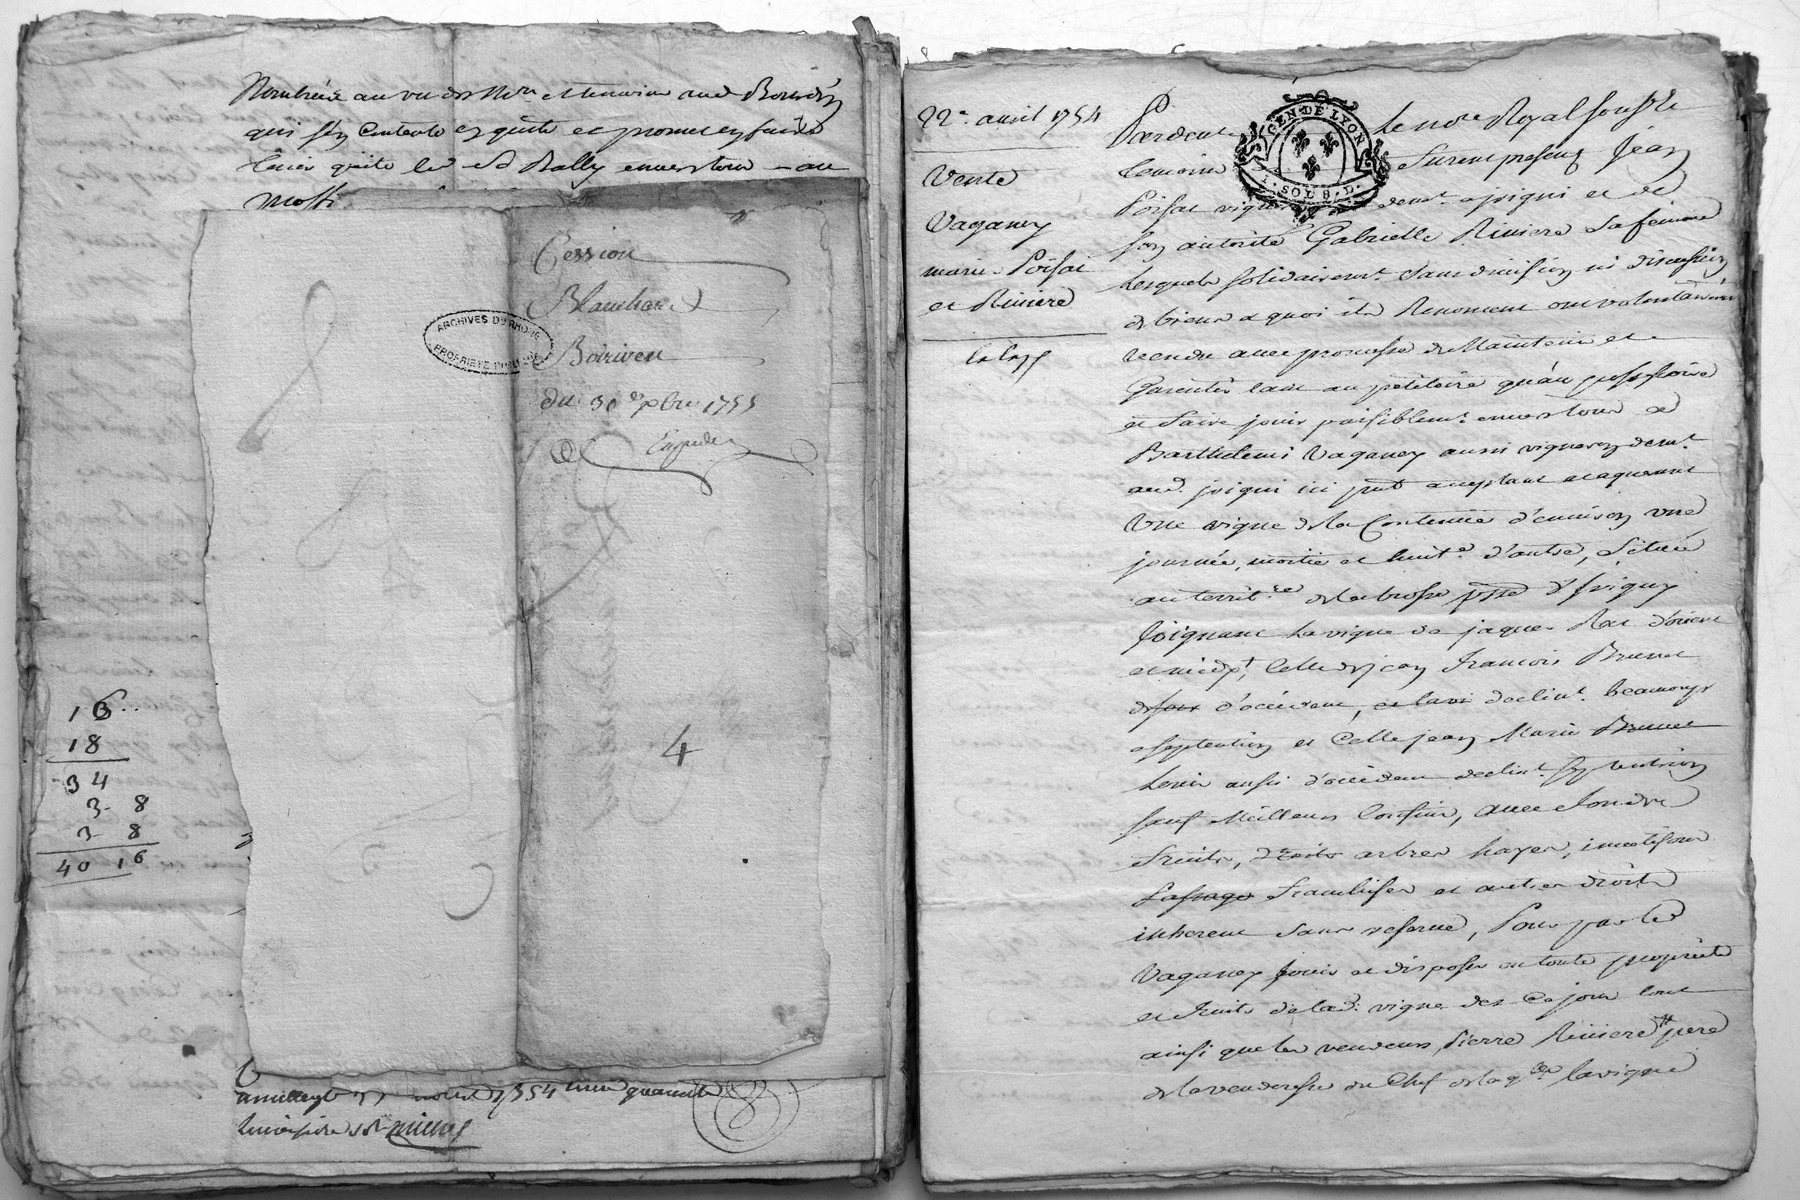 Nombrée au vu des No.re et temoins aud Bourdin
qui s'en Contente en quite et promet en faire
tenir quite led sr Bally envers tous - au
moy
Cession
Blanchard
Boiriven
du 30 e 7bre 1755
Expedié
ARCHIVES DU RHONE
PROPRIETE PUBLIQUE
4
16
18
34
3 8
3 8
40 16
1754
quarante
22e avril 1754
Vente
Vaganey
marie Poisat
et Riviere
Pardevant le no.re Royal soussigné
temoins furent presens Jean
GEN. DE LYON
1. SOL 8. D.
Poisat vigneron demt a jrigni et de
son autorité Gabrielle Riviere sa femme
Lesquels solidairemt sans division ni discussion
de biens a quoi ils Renoncent ont volontairemt
vendu avec promesse de Maintenir et
Garentir tant au petitoire qu'au possessoire
et faire jouir paisiblemt envers tous a
Barthelemi Vaganey aussi vigneron demt
aud. jrigni ici pnt acceptant et aquerant
Une vigne de la Contenue d'environ une
journée, moitié et huite d'autre, située
au territ.re de la brosse psse d'jrigny
Joignant la vigne de jaques Rat d'orient
et midy, Celle de jean François Brunet
d'occident, declint beaucoup
a septention et Celle jean Marie Brunet
Louis aussi d'occident declint septentrion
sauf Meilleurs Confins, avec fonds
fruits, droits arbres hayes, investisons
Passage franchises et autres droits
inherent sans reserve, Pour par led
Vaganey jouir et disposer en toute propriété
et fruits de lad. vigne dez Ce jour tout
ainsi que les vendeurs, Pierre Riviere pere
de la venderesse du Chef de laq.lle la vigne